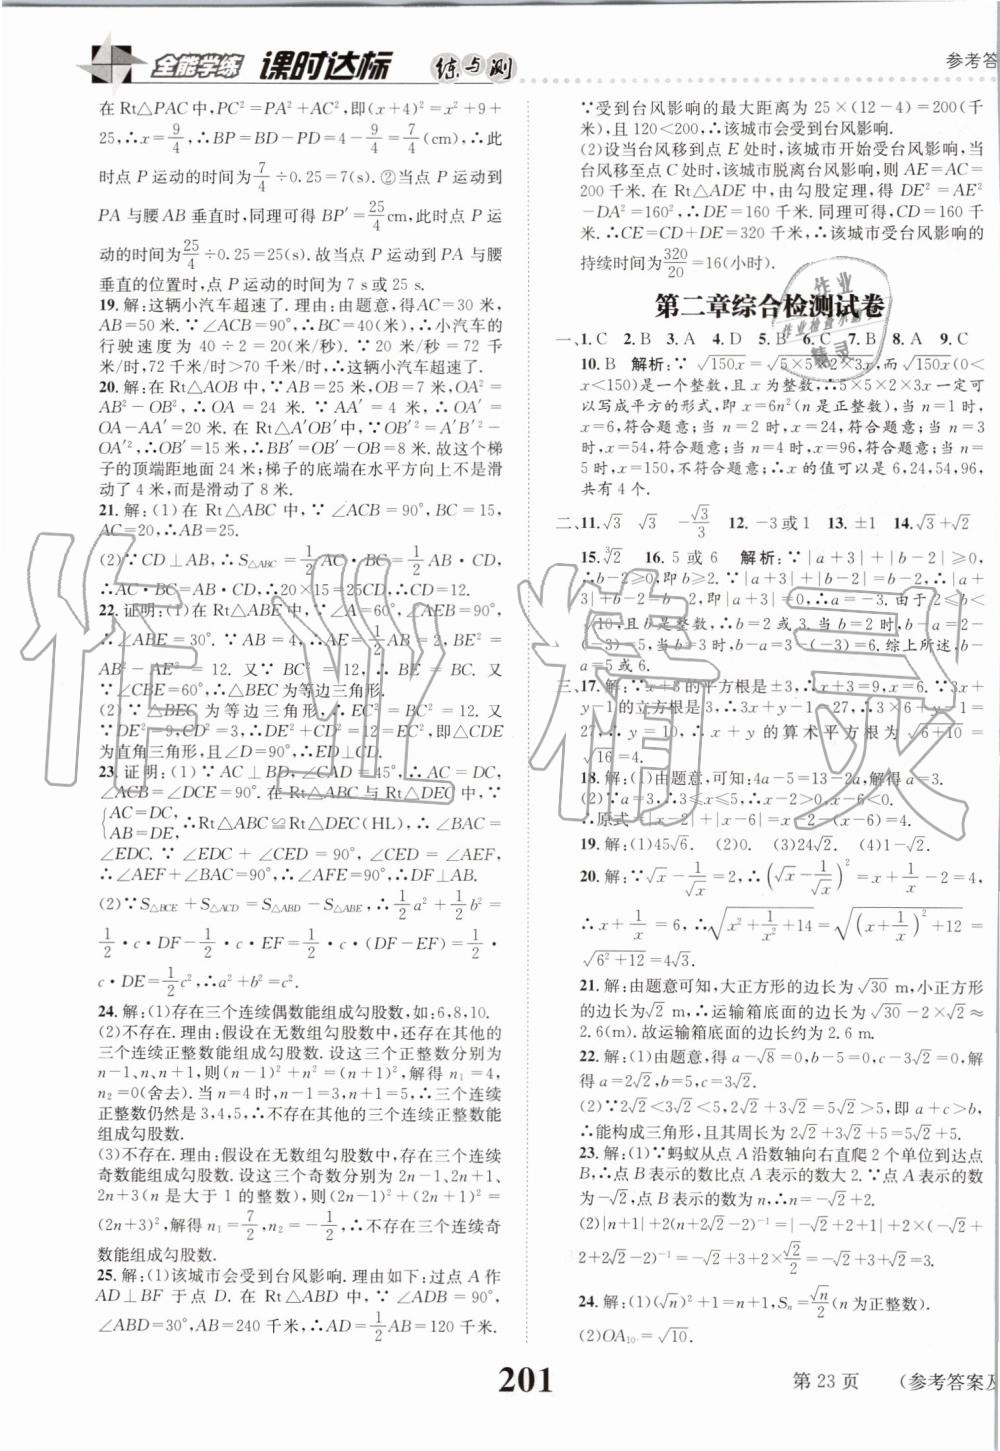 全能学练 课时达标 练与测
参考答案
在 Rt△PAC 中,PC²=PA²+AC²,即(x+4)²=x²+9+
25,∴x=9/4,∴BP=BD-PD=4-9/4=7/4(cm),∴此
时点 P 运动的时间为7/4÷0.25=7(s).②当点 P 运动到
PA 与腰 AB 垂直时,同理可得 BP′=25/4cm,此时点 P 运
动的时间为25/4÷0.25=25(s).故当点 P 运动到 PA 与腰
垂直的位置时,点 P 运动的时间为 7 s或 25 s.
19.解:这辆小汽车超速了.理由:由题意,得AC=30 米,
AB=50 米.∵∠ACB=90°,∴BC=40(米),∴小汽车的
行驶速度为 40÷2=20(米/秒).∵20 米/秒=72 千
米/时,72 千米/时>70 千米/时,∴这辆小汽车超速了.
20.解:在Rt△AOB 中,∵AB=25 米,OB=7 米,OA²=
AB²-OB²,∴OA=24 米.∵AA′=4 米,∴OA′=
OA-AA′=20 米.在 Rt△A′OB′中,∵OB′²=A′B′²-
OA′²,∴OB′=15 米,∴BB′=OB′-OB=8 米.故这个梯
子的顶端距地面 24 米;梯子的底端在水平方向上不是滑
动了 4 米,而是滑动了 8 米.
21.解:(1)在 Rt△ABC 中,∵∠ACB=90°,BC=15,
AC=20,∴AB=25.
(2)∵CD⊥AB,∴S△ABC=1/2AC·BC=1/2AB·CD,
∴AC·BC=AB·CD,∴20×15=25CD,∴CD=12.
22.证明:(1)在 Rt△ABE 中,∵∠A=60°,∠AEB=90°,
∴∠ABE=30°.∵AB=4,∴AE=1/2AB=2,BE²=
AB²-AE²=12.又∵BC²=12,∴BE=BC.又
∵∠CBE=60°,∴△BEC为等边三角形.
(2)∵△BEC 为等边三角形,∴EC²=BC²=12.又
∵DE²=9,CD²=3,∴DE²+CD²=12=EC²,即△CDE
为直角三角形,且∠D=90°.
23.证明:(1)∵AC⊥BD,∠CAD=45°,∴AC=DC,
∠ACB=∠DCE=90°.在Rt△ABC 与 Rt△DEC 中,∵
{AC=DC, AB=DE, ∴Rt△ABC≌Rt△DEC(HL),∴∠BAC=
∠EDC.∵∠EDC+∠CED=90°,∠CED=∠AEF,
∴∠AEF+∠BAC=90°,∴∠AFE=90°,∴DF⊥AB.
(2)∵S△BCE+S△ACD=S△ABD-S△ABE,∴1/2a²+1/2b²=
1/2·c·DF-1/2·c·EF=1/2·c·(DF-EF)=1/2
·c·DE=1/2c²,∴a²+b²=c².
24.解:(1)存在三个连续偶数能组成勾股数,如:6,8,10.
(2)不存在.理由:假设在无数组勾股数中,还存在其他的
三个连续正整数能组成勾股数.设这三个正整数分别为
n-1、n、n+1,则(n-1)²+n²=(n+1)²,解得n₁=4,
n₂=0(舍去).当n=4时,n-1=3,n+1=5,∴三个连续
正整数仍然是 3,4,5,∴不存在其他的三个连续正整数能
组成勾股数.
(3)不存在.理由:假设在无数组勾股数中,存在三个连续
奇数能组成勾股数.设这三个奇数分别为 2n-1、2n+1、
2n+3(n是大于 1 的整数),则(2n-1)²+(2n+1)²=
(2n+3)²,解得n₁=7/2,n₂=-1/2,∴不存在三个连续奇
数能组成勾股数.
25.解:(1)该城市会受到台风影响.理由如下:过点 A 作
AD⊥BF 于点 D.在 Rt△ABD 中,∵∠ADB=90°,
∠ABD=30°,AB=240 千米,∴AD=1/2AB=120 千米.
∵受到台风影响的最大距离为 25×(12-4)=200(千
米),且 120<200,∴该城市会受到台风影响.
(2)设当台风移到点 E 处时,该城市开始受台风影响,当
台风移到点 C 处时,该城市脱离台风影响,则AE=AC=
200 千米.在 Rt△ADE 中,由勾股定理,得 DE²=AE²
-DA²=160²,∴DE=160 千米.同理可得,CD=160 千
米.∴CE=CD+DE=320 千米,∴该城市受台风影响的
持续时间为320/20=16(小时).
第二章综合检测试卷
一、1.C 2.B 3.A 4.D 5.B 6.C 7.B 8.A 9.C
10.B 解析:∵√150x=√5×5×2×3x,而√150x(0<
x<150)是一个整数,且 x 为整数,∴5×5×2×3x 一定可
以写成平方的形式,即x=6n²(n是正整数),当 n=1 时,
x=6,符合题意;当 n=2 时,x=24,符合题意;当 n=3
时,x=54,符合题意;当 n=4 时,x=96,符合题意;当n=
5时,x=150,不符合题意;∴x 的值可以是 6,24,54,96,
共有 4 个.
二、11.√3 √3 -√3/3 12.-3或1 13.±1 14.√3+√2
15.³√2 16.5 或 6 解析:∵|a+3|+|b-2|≥0,
∴b-2≥0,即b≥2.∵|a+3|+|b-2|=b-2,∴|a+
3|+b-2=b-2,∴|a+3|=0,∴a=-3.由于 2≤b<
√10,且 b 是整数,∴b=2 或 3.当 b=2 时,b-a=
2-(-3)=5;当b=3时,b-a=3-(-3)=6.综上所述,b-
a=5或 6.
三、17.解:∵x+3的平方根是±3,∴x+3=9,x=6.∵3x+
y-1的立方根是3,∴3x+y-1=27,∴3×6+y-1=
27,∴y=10,∴x+y 的算术平方根为√6+10=
√16=4.
18.解:(1)由题意,可知:4a-5=13-2a,解得a=3.
(2)∵a=3,∴3≤x≤5,∴x-2>0,x-6<0.
∴原式=|x-2|+|x-6|=4.
19.解:(1)45√6. (2)0. (3)24√2. (4)1-√2.
20.解:∵√x-1/√x=2,∴(√x-1/√x)²=x+1/x-2=4,
∴x+1/x=6,∴√(x²+1/x²+14)=√((x+1/x)²+12)=
√(6²+12)=4√3.
21.解:由题意可知,大正方形的边长为√30 m,小正方形
的边长为√2 m,∴运输箱底面的边长为√30-2×√2≈
2.6(m).故运输箱底面的边长约为 2.6 m.
22.解:(1)由题意,得a-√8=0,b-5=0,c-3√2=0,解
得a=2√2,b=5,c=3√2.
(2)∵2√2<3√2<5,2√2+3√2=5√2>5,即a+c>b,
∴能构成三角形,且其周长为 2√2+3√2+5=5√2+5.
23.解:(1)∵蚂蚁从点A沿数轴向右直爬 2 个单位到达点
B,∴点 B 表示的数比点 A 表示的数大 2.∵点 A 表示的数
为-√2,点B表示的数为n,∴n=-√2+2.
(2)|n+1|+(n+2√2-2)⁻¹=|-√2+2+1|+(-√2+
2+2√2-2)⁻¹=-√2+3+2×√2/2=-√2+3+√2=3.
24.解:(1)(√n)²+1=n+1,Sₙ=√n/2(n为正整数).
(2)OA₁₀=√10.
作业精灵
作业
作业检查小
精灵
201
第 23 页
（参考答案及